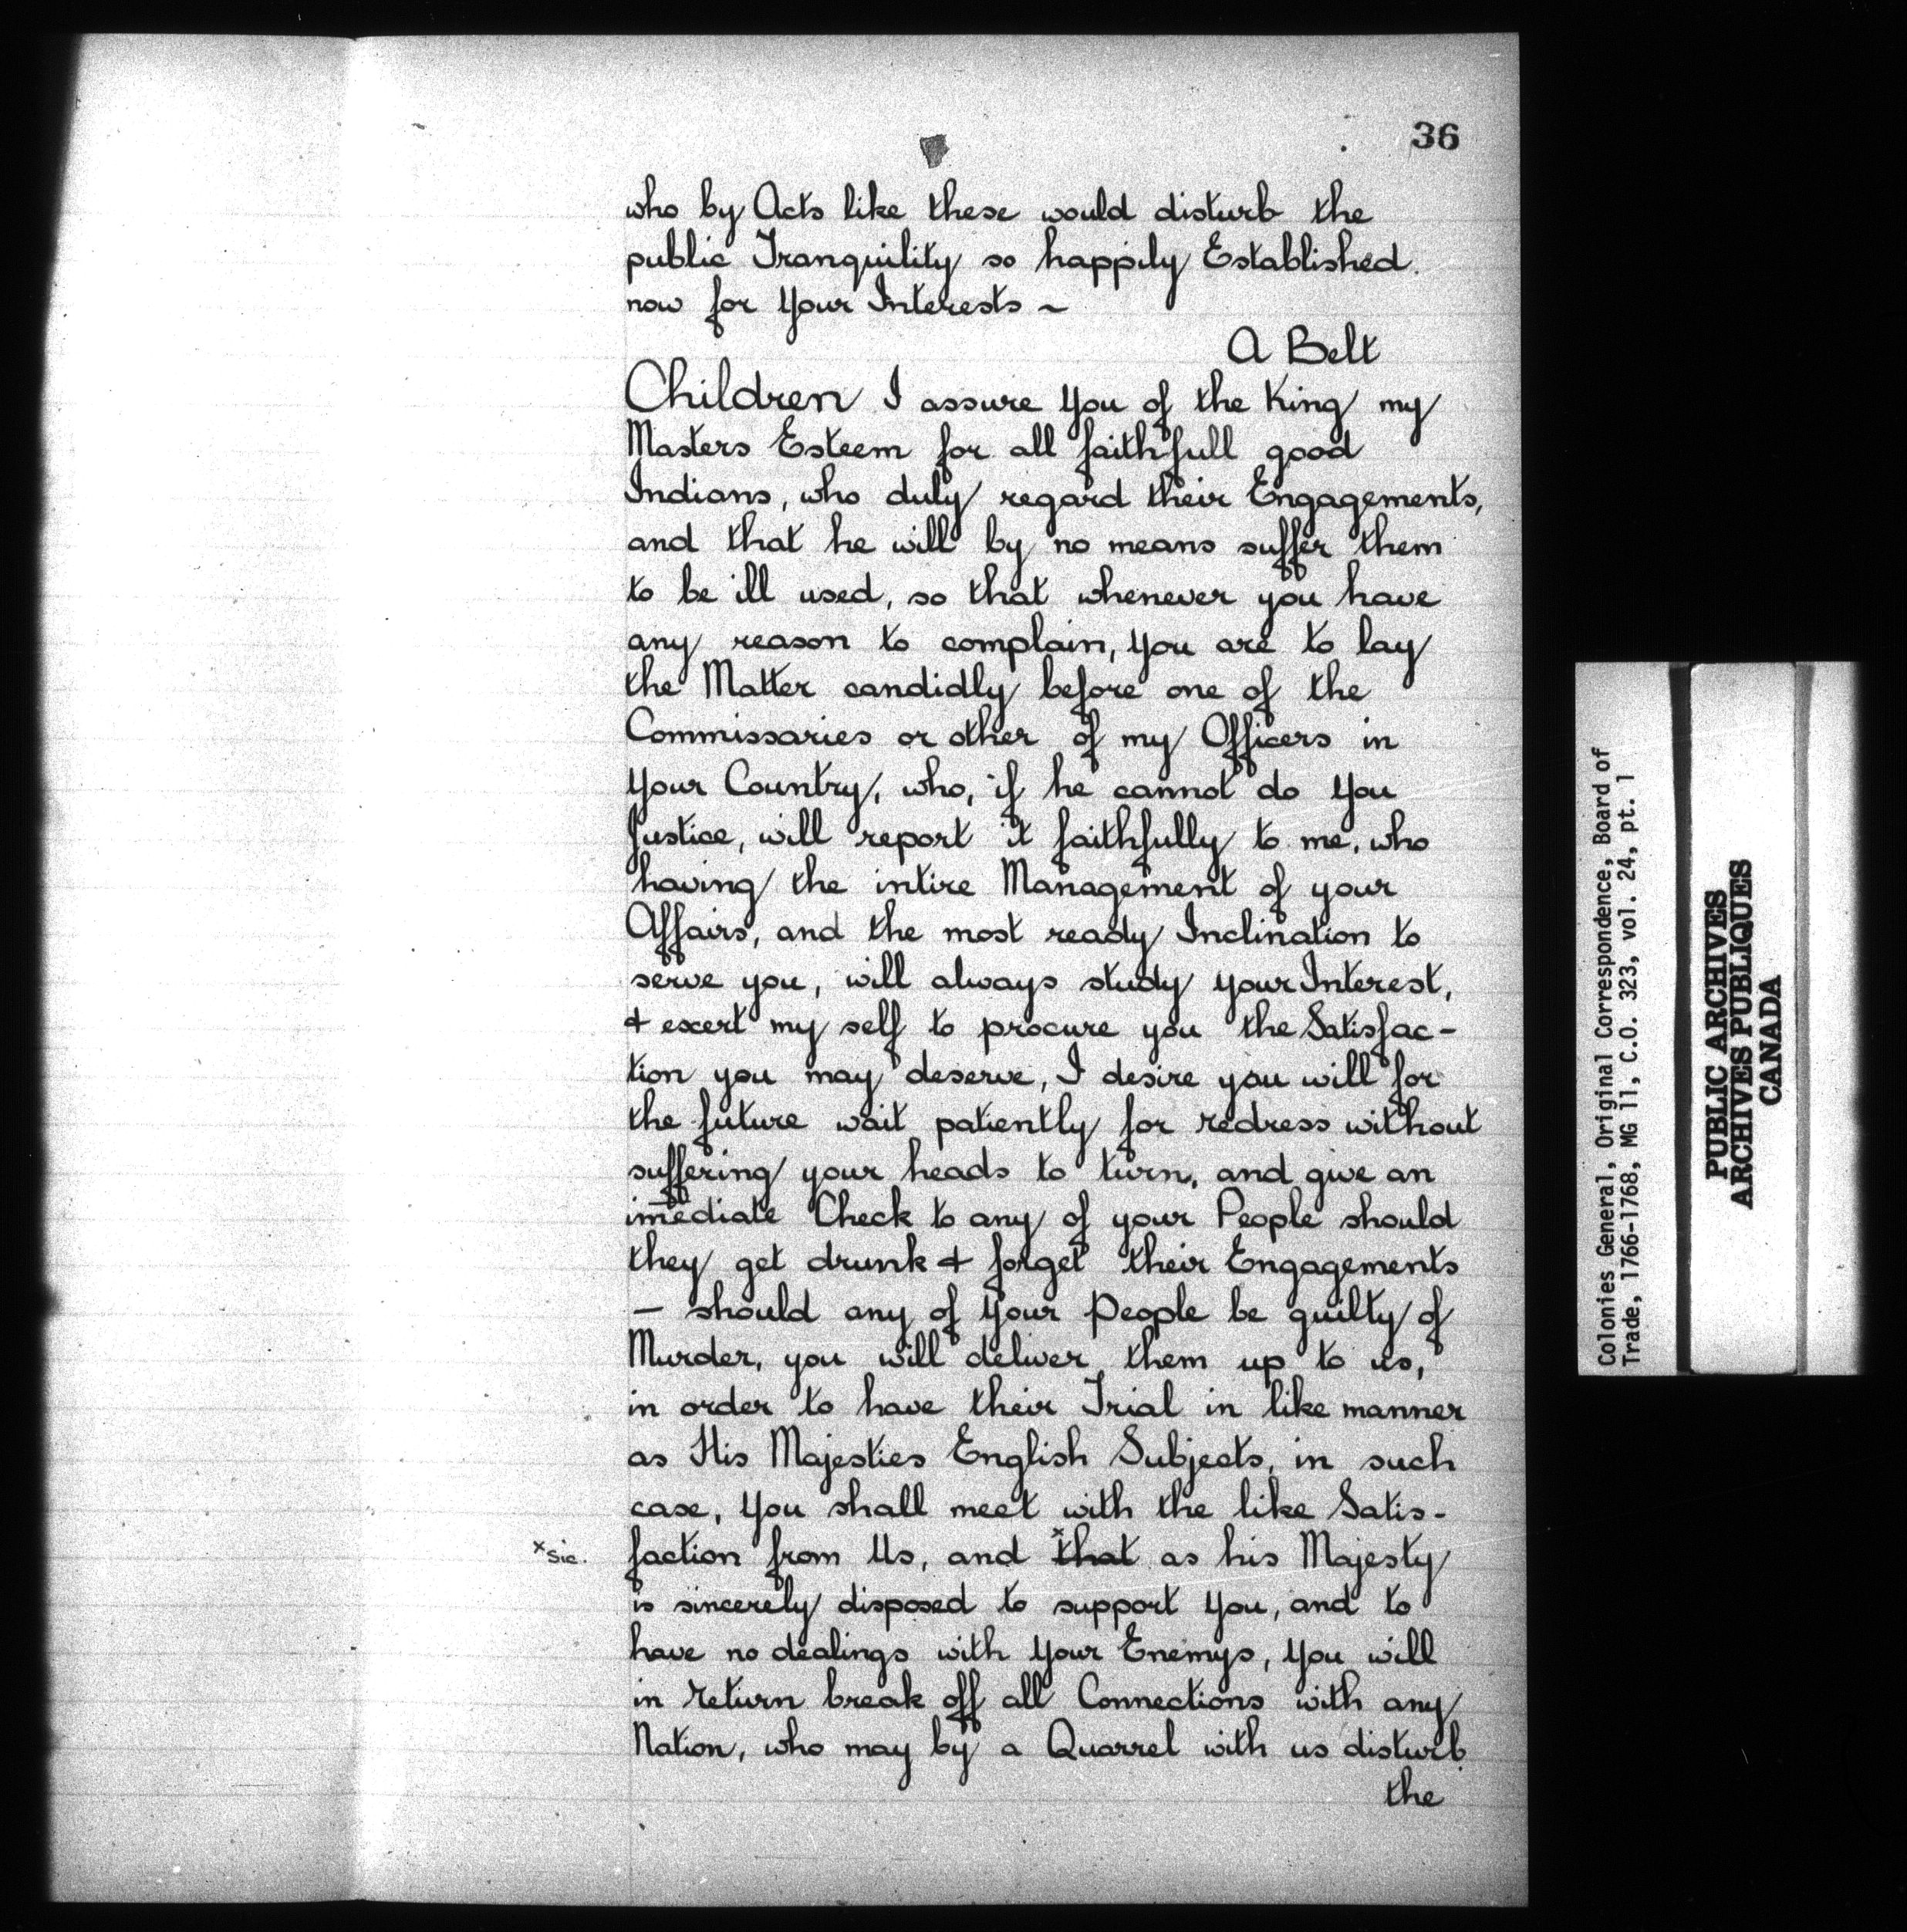 36
who by Acts like these would disturb the
public Tranquility so happily Established.
now for your Interests ~
A Belt
Children I assure you of the King my
Masters Esteem for all faithfull good
Indians, who duly regard their Engagements,
and that he will by no means suffer them
to be ill used, so that whenever you have
any reason to complain, you are to lay
the Matter candidly before one of the
Commissaries or other of my Officers in
your Country, who, if he cannot do you
Justice, will report it faithfully to me, who
having the intire Management of your
Affairs, and the most ready Inclination to
serve you, will always study your Interest,
& exert my self to procure you the Satisfac-
tion you may deserve, I desire you will for
the future wait patiently for redress without
suffering your heads to turn, and give an
im̅ediate Check to any of your People should
they get drunk & forget their Engagements
— should any of your People be guilty of
Murder, you will deliver them up to us,
in order to have their Trial in like manner
as His Majesties English Subjects, in such
case, you shall meet with the like Satis-
x Sic. faction from Us, and x that as his Majesty
is sincerely disposed to support you, and to
have no dealings with your Enemys, you will
in return break off all Connections with any
Nation, who may by a Quarrel with us disturb
the
Colonies General, Original Correspondence, Board of
Trade, 1766-1768, MG 11, C.O. 323, vol. 24, pt. 1
PUBLIC ARCHIVES
ARCHIVES PUBLIQUES
CANADA